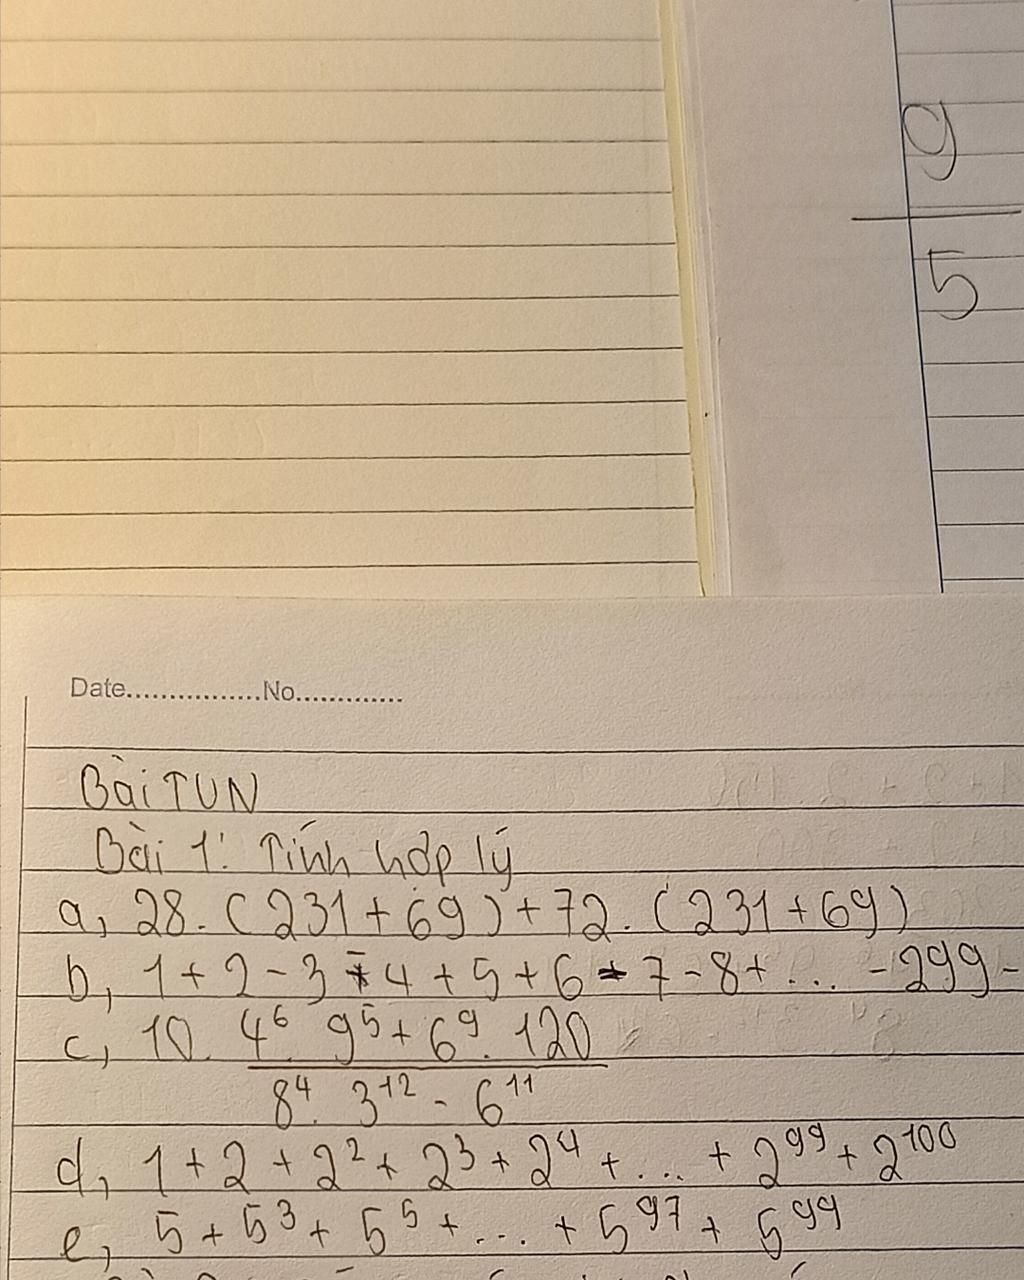 9
5
Date................No.............
Bài TUN
Bài 1: Tính hợp lý
a, 28. (231 + 69) + 72. (231 + 69)
b, 1 + 2 - 3 - 4 + 5 + 6 - 7 - 8 + ... - 299 -
c, 10. 4⁶. 9⁵ + 6⁹. 120
8⁴. 3¹² - 6¹¹
d, 1 + 2 + 2² + 2³ + 2⁴ + ... + 2⁹⁹ + 2¹⁰⁰
e, 5 + 5³ + 5⁵ + ... + 5⁹⁷ + 5⁹⁹